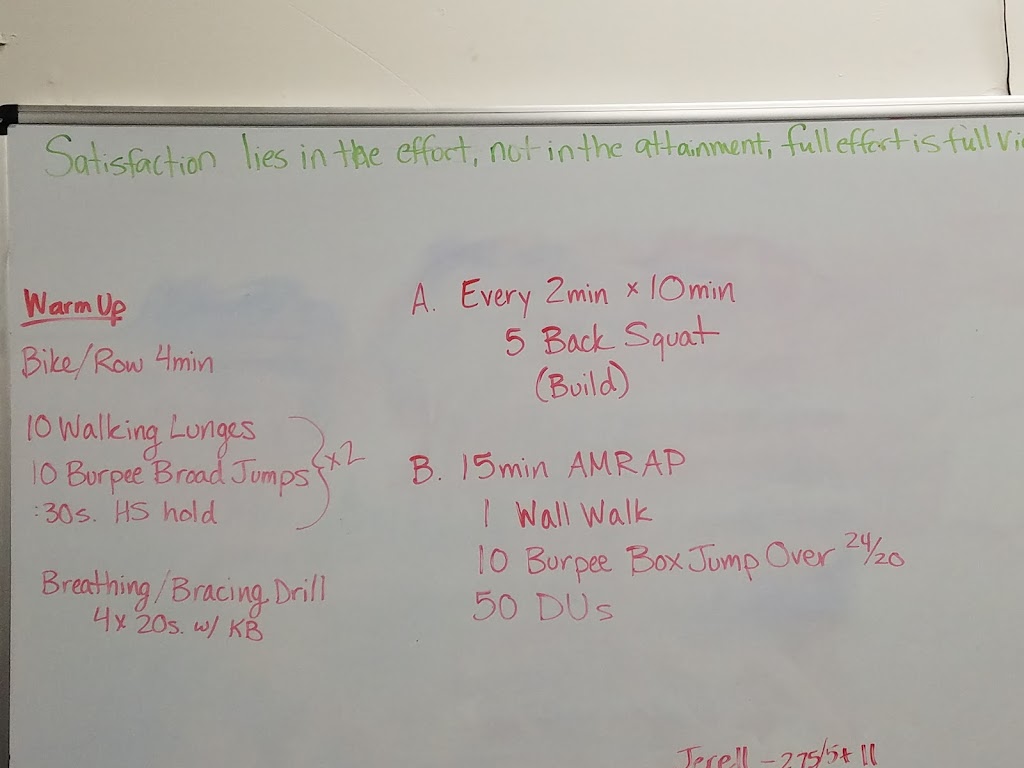 Satisfaction lies in the effort, not in the attainment, full effort is full
Warm Up
Bike/Row 4min
10 Walking Lunges
10 Burpee Broad Jumps
:30s. HS hold
x2
Breathing/Bracing Drill
4x 20s. w/ KB
A. Every 2min x 10min
5 Back Squat
(Build)
B. 15min AMRAP
1 Wall Walk
10 Burpee Box Jump Over 24/20
50 DUs
Jerell - 275/5+11